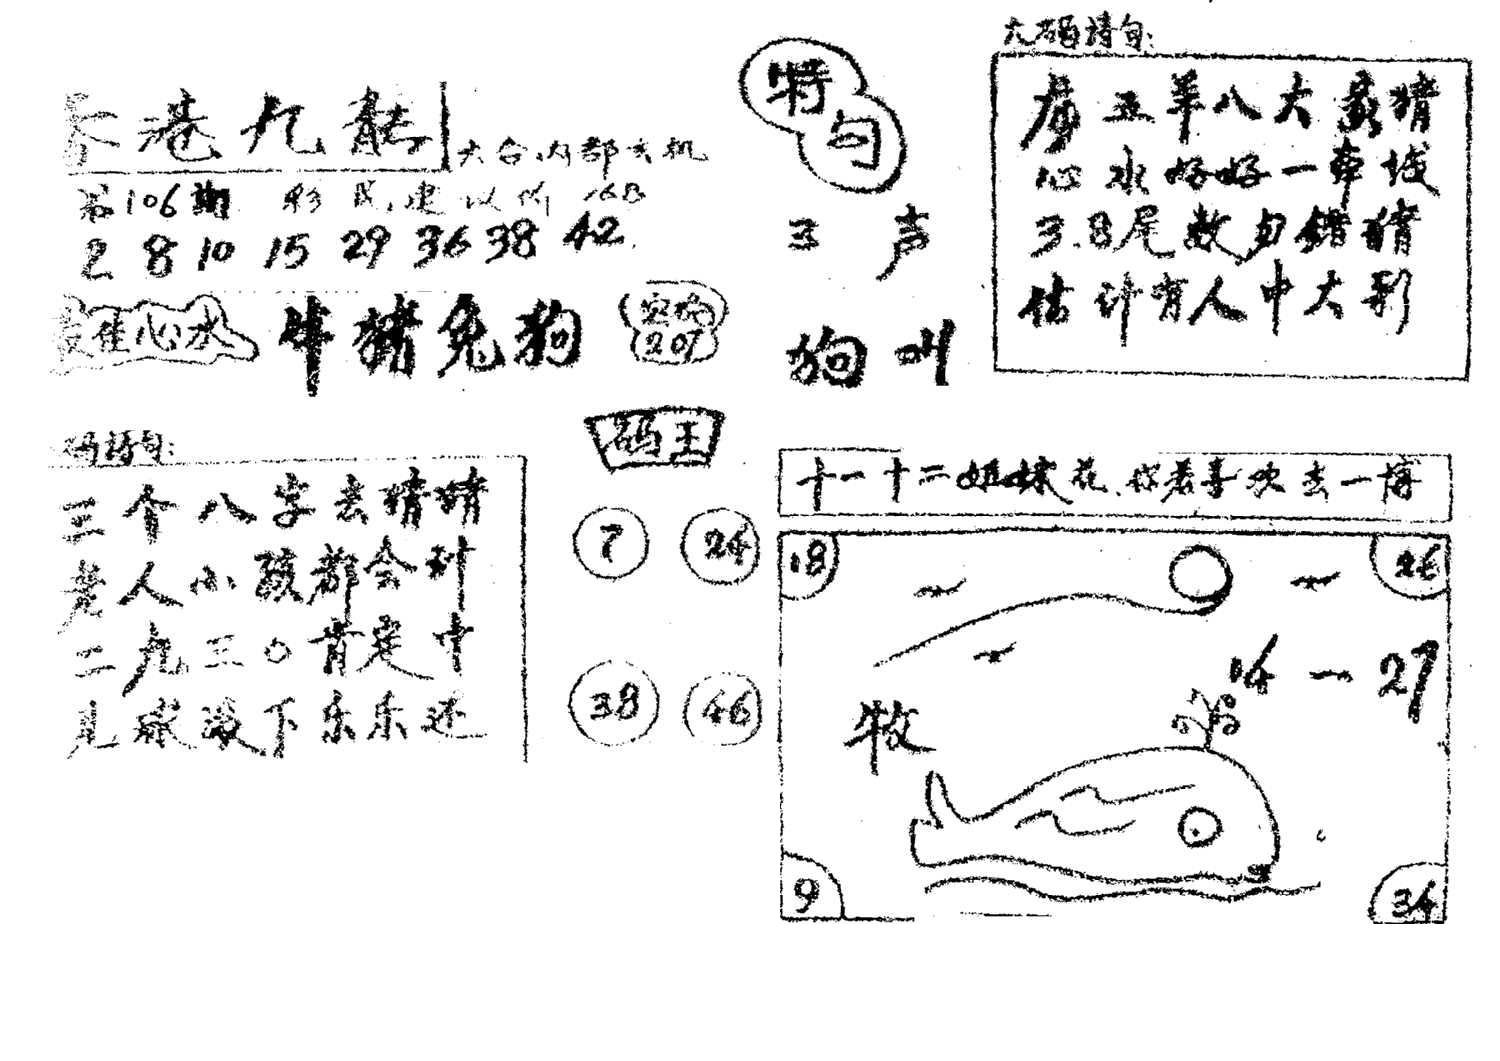 巷九龍
六合内部玄机
第106期 彩民建议价 168
2 8 10 15 29 36 38 42
佳心水
牛猪兔狗
207
特句
三声
狗叫
六码诗句:
虎五羊八大家猜
心水好好一串城
3.8尾数勿错猜
估计有人中大彩
码诗句:
三个八字去猜猜
老人小孩都会列
二九三〇肯定中
滚下乐乐还
码王
7 24
38 46
十一十二姐妹花.你若喜欢去一博
18 26
14一27
牧
9 34